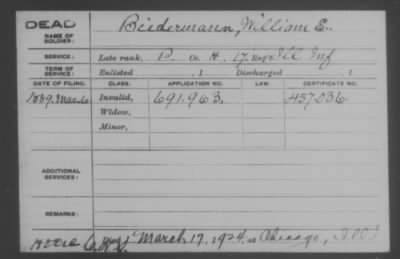 DEAD
NAME OF SOLDIER: Biedermann, William E.
SERVICE: Late rank, P. Co. H, 17. Reg't Ill Inf
TERM OF SERVICE: Enlisted , 1 Discharged , 1
DATE OF FILING. CLASS. APPLICATION NO. LAW. CERTIFICATE NO.
1889. Mar. Invalid, 691.963. 457.036.
Widow,
Minor,
ADDITIONAL SERVICES:
REMARKS:
Died March 17, 1924, at Chicago, Ill